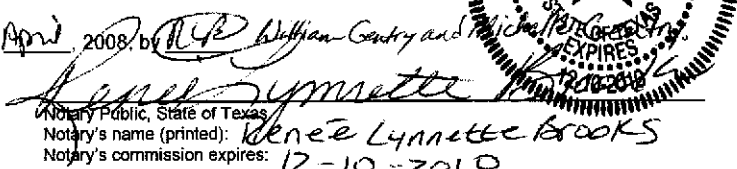 April, 2008, by William Gentry and Michelle Gentry.
STATE OF TEXAS
EXPIRES
12-10-2010
Renee Lynnette Brooks
Notary Public, State of Texas
Notary's name (printed): Reneé Lynnette Brooks
Notary's commission expires: 12-10-2010